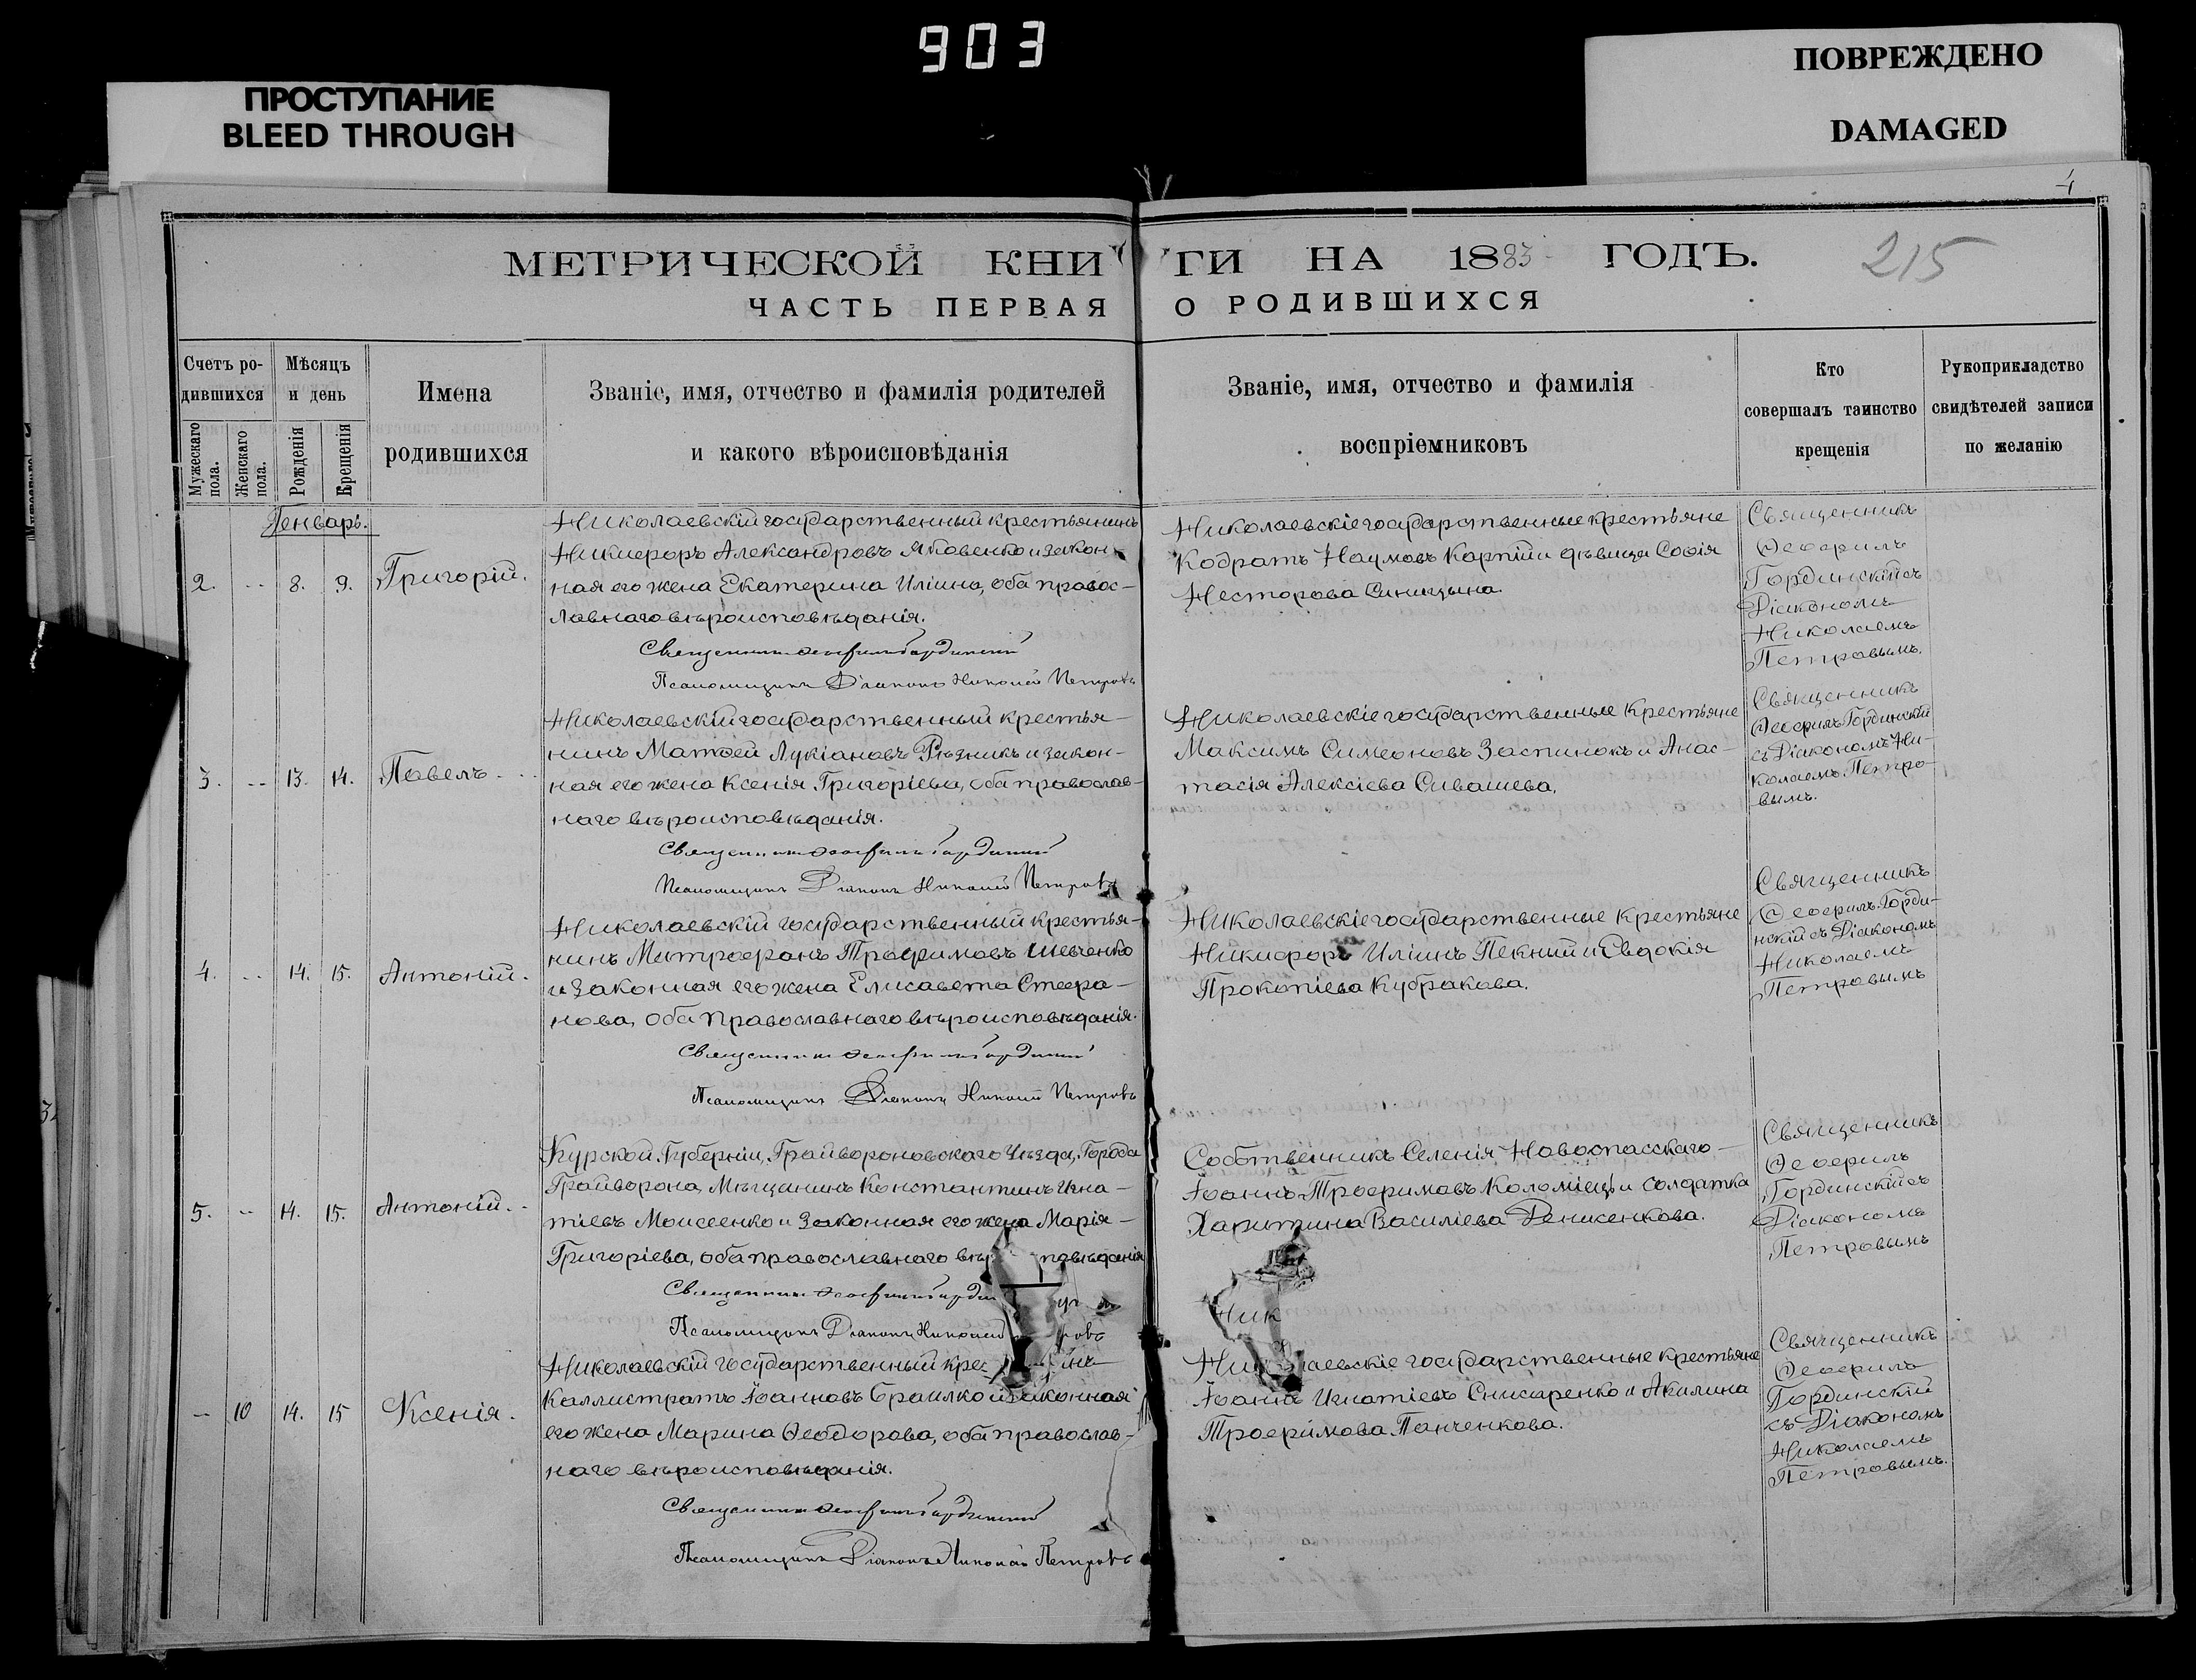 903
ПРОСТУПАНИЕ
BLEED THROUGH
ПОВРЕЖДЕНО
DAMAGED
МЕТРИЧЕСКОЙ КНИГИ НА 1883 ГОДЪ.
215
ЧАСТЬ ПЕРВАЯ О РОДИВШИХСЯ
Счетъ ро-
дившихся
Мужескаго пола.
Женскаго пола.
Мѣсяцъ
и день
Рожденія
Крещенія
Имена
родившихся
Званіе, имя, отчество и фамилія родителей
и какого вѣроисповѣданія
Званіе, имя, отчество и фамилія
воспріемниковъ
Кто
совершалъ таинство
крещенія
Рукоприкладство
свидѣтелей записи
по желанію
Генварь.
2. -- 8. 9. Григорій.
Николаевскій государственный крестьянинъ
Никифоръ Александровъ Яковенко и закон-
ная его жена Екатерина Иліина, оба правос-
лавнаго вѣроисповѣданія.
Священникъ Ѳеофилъ Гординскій
Псаломщикъ Діаконъ Николай Петровъ
Николаевскіе государственные крестьяне
Кодратъ Наумовъ Карпій и дѣвица Софія
Несторова Синицына.
Священникъ
Ѳеофилъ
Гординскій съ
Діакономъ
Николаемъ
Петровымъ.
3. -- 13. 14. Павелъ.
Николаевскій государственный крестья-
нинъ Матѳей Лукіановъ Рѣзникъ и закон-
ная его жена Ксенія Григоріева, оба православ-
наго вѣроисповѣданія.
Священникъ Ѳеофилъ Гординскій
Псаломщикъ Діаконъ Николай Петровъ
Николаевскіе государственные крестьяне
Максимъ Симеоновъ Заспинокъ и Анас-
тасія Алексіева Сивашева.
Священникъ
Ѳеофилъ Гординскій
съ Діакономъ Ни-
колаемъ Петро-
вымъ.
4. -- 14. 15. Антоній.
Николаевскій государственный крестья-
нинъ Митрофанъ Трофимовъ Шевченко
и законная его жена Елисавета Стефа-
нова, оба православнаго вѣроисповѣданія.
Священникъ Ѳеофилъ Гординскій
Псаломщикъ Діаконъ Николай Петровъ
Николаевскіе государственные крестьяне
Никифоръ Иліинъ Пекный и Евдокія
Прокопіева Кубракова.
Священникъ
Ѳеофилъ Горди-
нскій съ Діакономъ
Николаемъ
Петровымъ
5. -- 14. 15. Антоній.
Курской Губерніи, Грайвороновскаго Уѣзда, Города
Грайворона, Мѣщанинъ Константинъ Игна-
тіевъ Моисеенко и законная его жена Марія
Григоріева, оба православнаго вѣр повѣданія
Священникъ Ѳеофилъ Горди
Псаломщикъ Діаконъ Николай ровъ
Собственникъ Селенія Новоспасскаго
Іоаннъ Трофимовъ Коломіецъ и солдатка
Харитина Василіева Денисенкова.
Священникъ
Ѳеофилъ
Гординскій съ
Діакономъ
Петровымъ
Ник
-- 10 14. 15 Ксенія.
Николаевскій государственный крес инъ
Каллистратъ Іоанновъ Браилко и законная
его жена Марина Ѳеодорова, оба православ-
наго вѣроисповѣданія.
Священникъ Ѳеофилъ Гординскій
Псаломщикъ Діаконъ Николай Петровъ
Николаевскіе государственные крестьяне
Іоаннъ Игнатіевъ Снисаренко и Акилина
Трофимова Панченкова.
Священникъ
Ѳеофилъ
Гординскій
съ Діакономъ
Николаемъ
Петровымъ.